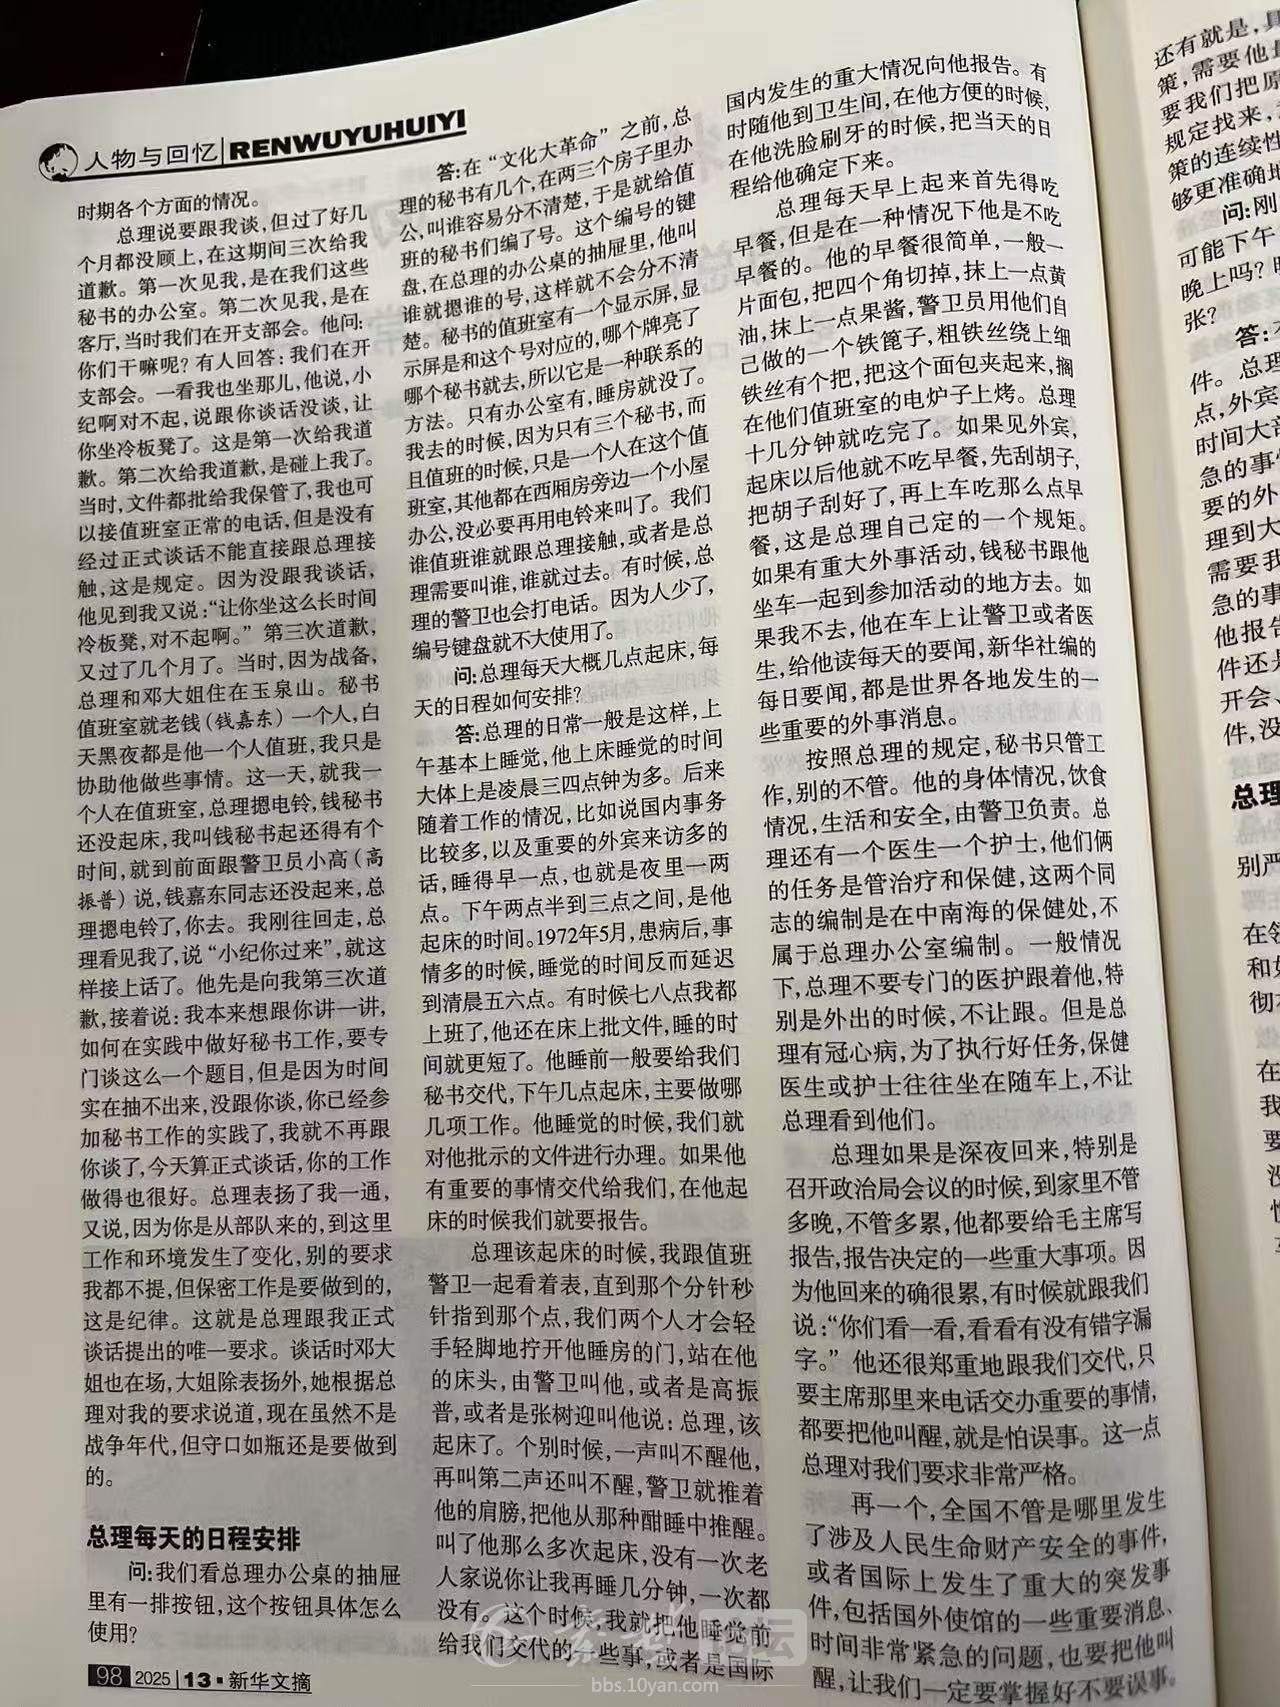 人物与回忆 RENWUYUHUIYI
时期各个方面的情况。
总理说要跟我谈,但过了好几
个月都没顾上,在这期间三次给我
道歉。第一次见我,是在我们这些
秘书的办公室。第二次见我,是在
客厅,当时我们在开支部会。他问:
你们干嘛呢?有人回答:我们在开
支部会。一看我也坐那儿,他说,小
纪啊对不起,说跟你谈话没谈,让
你坐冷板凳了。这是第一次给我道
歉。第二次给我道歉,是碰上我了。
当时,文件都批给我保管了,我也可
以接值班室正常的电话,但是没有
经过正式谈话不能直接跟总理接
触,这是规定。因为没跟我谈话,
他见到我又说:“让你坐这么长时间
冷板凳,对不起啊。”第三次道歉,
又过了几个月了。当时,因为战备,
总理和邓大姐住在玉泉山。秘书
值班室就老钱(钱嘉东)一个人,白
天黑夜都是他一个人值班,我只是
协助他做些事情。这一天,就我一
个人在值班室,总理摁电铃,钱秘书
还没起床,我叫钱秘书起还得有个
时间,就到前面跟警卫员小高(高
振普)说,钱嘉东同志还没起来,总
理摁电铃了,你去。我刚往回走,总
理看见我了,说“小纪你过来”,就这
样接上话了。他先是向我第三次道
歉,接着说:我本来想跟你讲一讲,
如何在实践中做好秘书工作,要专
门谈这么一个题目,但是因为时间
实在抽不出来,没跟你谈,你已经参
加秘书工作的实践了,我就不再跟
你谈了,今天算正式谈话,你的工作
做得也很好。总理表扬了我一通,
又说,因为你是从部队来的,到这里
工作和环境发生了变化,别的要求
我都不提,但保密工作是要做到的,
这是纪律。这就是总理跟我正式
谈话提出的唯一要求。谈话时邓大
姐也在场,大姐除表扬外,她根据总
理对我的要求说道,现在虽然不是
战争年代,但守口如瓶还是要做到
的。
总理每天的日程安排
问:我们看总理办公桌的抽屉
里有一排按钮,这个按钮具体怎么
使用?
98 2025|13·新华文摘
答:在“文化大革命”之前,总
理的秘书有几个,在两三个房子里办
公,叫谁容易分不清楚,于是就给值
班的秘书们编了号。这个编号的键
盘,在总理的办公桌的抽屉里,他叫
谁就摁谁的号,这样就不会分不清
楚。秘书的值班室有一个显示屏,显
示屏是和这个号对应的,哪个牌亮了
哪个秘书就去,所以它是一种联系的
方法。只有办公室有,睡房就没了。
我去的时候,因为只有三个秘书,而
且值班的时候,只是一个人在这个值
班室,其他都在西厢房旁边一个小屋
办公,没必要再用电铃来叫了。我们
谁值班谁就跟总理接触,或者是总
理需要叫谁,谁就过去。有时候,总
理的警卫也会打电话。因为人少了,
编号键盘就不大使用了。
问:总理每天大概几点起床,每
天的日程如何安排?
答:总理的日常一般是这样,上
午基本上睡觉,他上床睡觉的时间
大体上是凌晨三四点钟为多。后来
随着工作的情况,比如说国内事务
比较多,以及重要的外宾来访多的
话,睡得早一点,也就是夜里一两
点。下午两点半到三点之间,是他
起床的时间。1972年5月,患病后,事
情多的时候,睡觉的时间反而延迟
到清晨五六点。有时候七八点我都
上班了,他还在床上批文件,睡的时
间就更短了。他睡前一般要给我们
秘书交代,下午几点起床,主要做哪
几项工作。他睡觉的时候,我们就
对他批示的文件进行办理。如果他
有重要的事情交代给我们,在他起
床的时候我们就要报告。
总理该起床的时候,我跟值班
警卫一起看着表,直到那个分针秒
针指到那个点,我们两个人才会轻
手轻脚地拧开他睡房的门,站在他
的床头,由警卫叫他,或者是高振
普,或者是张树迎叫他说:总理,该
起床了。个别时候,一声叫不醒他,
再叫第二声还叫不醒,警卫就推着
他的肩膀,把他从那种酣睡中推醒。
叫了他那么多次起床,没有一次老
人家说你让我再睡几分钟,一次都
没有。这个时候,我就把他睡觉前
给我们交代的一些事,或者是国际
国内发生的重大情况向他报告。有
时随他到卫生间,在他方便的时候,
在他洗脸刷牙的时候,把当天的日
程给他确定下来。
总理每天早上起来首先得吃
早餐,但是在一种情况下他是不吃
早餐的。他的早餐很简单,一般一
片面包,把四个角切掉,抹上一点黄
油,抹上一点果酱,警卫员用他们自
己做的一个铁篦子,粗铁丝绕上细
铁丝有个把,把这个面包夹起来,搁
在他们值班室的电炉子上烤。总理
十几分钟就吃完了。如果见外宾,
起床以后他就不吃早餐,先刮胡子,
把胡子刮好了,再上车吃那么点早
餐,这是总理自己定的一个规矩。
如果有重大外事活动,钱秘书跟他
坐车一起到参加活动的地方去。如
果我不去,他在车上让警卫或者医
生,给他读每天的要闻,新华社编的
每日要闻,都是世界各地发生的一
些重要的外事消息。
按照总理的规定,秘书只管工
作,别的不管。他的身体情况,饮食
情况,生活和安全,由警卫负责。总
理还有一个医生一个护士,他们俩
的任务是管治疗和保健,这两个同
志的编制是在中南海的保健处,不
属于总理办公室编制。一般情况
下,总理不要专门的医护跟着他,特
别是外出的时候,不让跟。但是总
理有冠心病,为了执行好任务,保健
医生或护士往往坐在随车上,不让
总理看到他们。
总理如果是深夜回来,特别是
召开政治局会议的时候,到家里不管
多晚,不管多累,他都要给毛主席写
报告,报告决定的一些重大事项。因
为他回来的确很累,有时候就跟我们
说:“你们看一看,看看有没有错字漏
字。”他还很郑重地跟我们交代,只
要主席那里来电话交办重要的事情,
都要把他叫醒,就是怕误事。这一点
总理对我们要求非常严格。
再一个,全国不管是哪里发生
了涉及人民生命财产安全的事件,
或者国际上发生了重大的突发事
件,包括国外使馆的一些重要消息、
时间非常紧急的问题,也要把他叫
醒,让我们一定要掌握好不要误事。
还有就是,具
策,需要他
要我们把原
规定找来,
策的连续性
够更准确地
问:刚
可能下午
晚上吗?
张?
答:
件。总理
点,外宾
时间大
急的事
要的外
理到大
需要我
急的事
他报告
件还是
开会、
件,没
总理
别严
在
和
彻
在
我
要
论坛
bbs.10yan.com